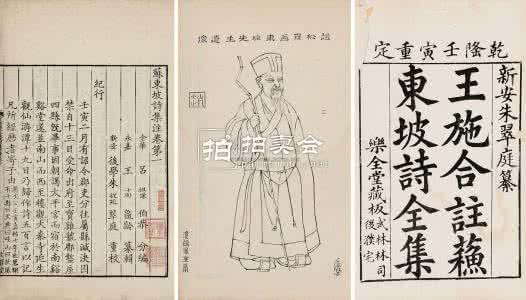 乾隆壬寅重定
新安朱翠庭纂
王施合註蘇
東坡詩全集
樂全堂藏板
武林林司
後濮宅
趙松雪画東坡先生遺像
拍拍卖会
蘇東坡詩集注卷第
金華 呂 祖謙 伯恭 分編
永嘉 王 十朋 龜齡 纂輯
新安 後學朱 從延 翠庭 重校
紀行
壬寅二月有詔令郡吏分往屬縣減決囚
禁自十三日受命出府至寶雞虢郿盩厔
四縣既畢事因朝謁太平宮而宿於南谿
谿堂遂並南山而西至樓觀大秦寺延生
觀仙遊潭十九日乃歸作詩五百言以記
凡所經歷者寄子由